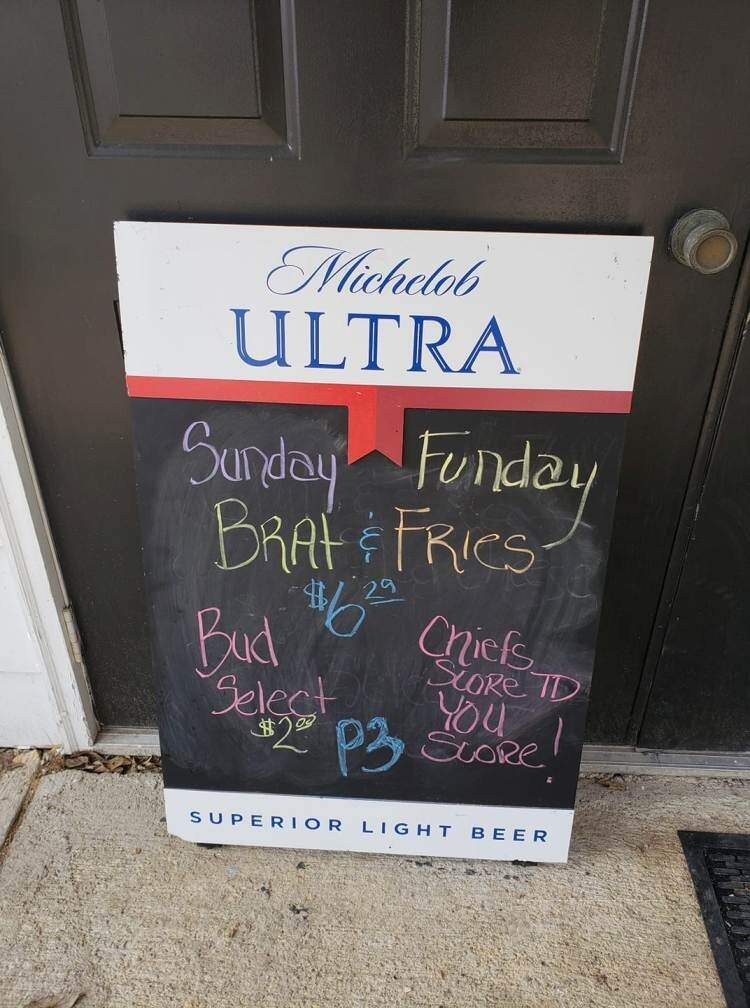 Michelob
ULTRA
Sunday Funday
BRAt & FRies
$6 29
Bud
Select
$2 00
P3
Chiefs
SCORE TD
YOU
SCORe!
SUPERIOR LIGHT BEER